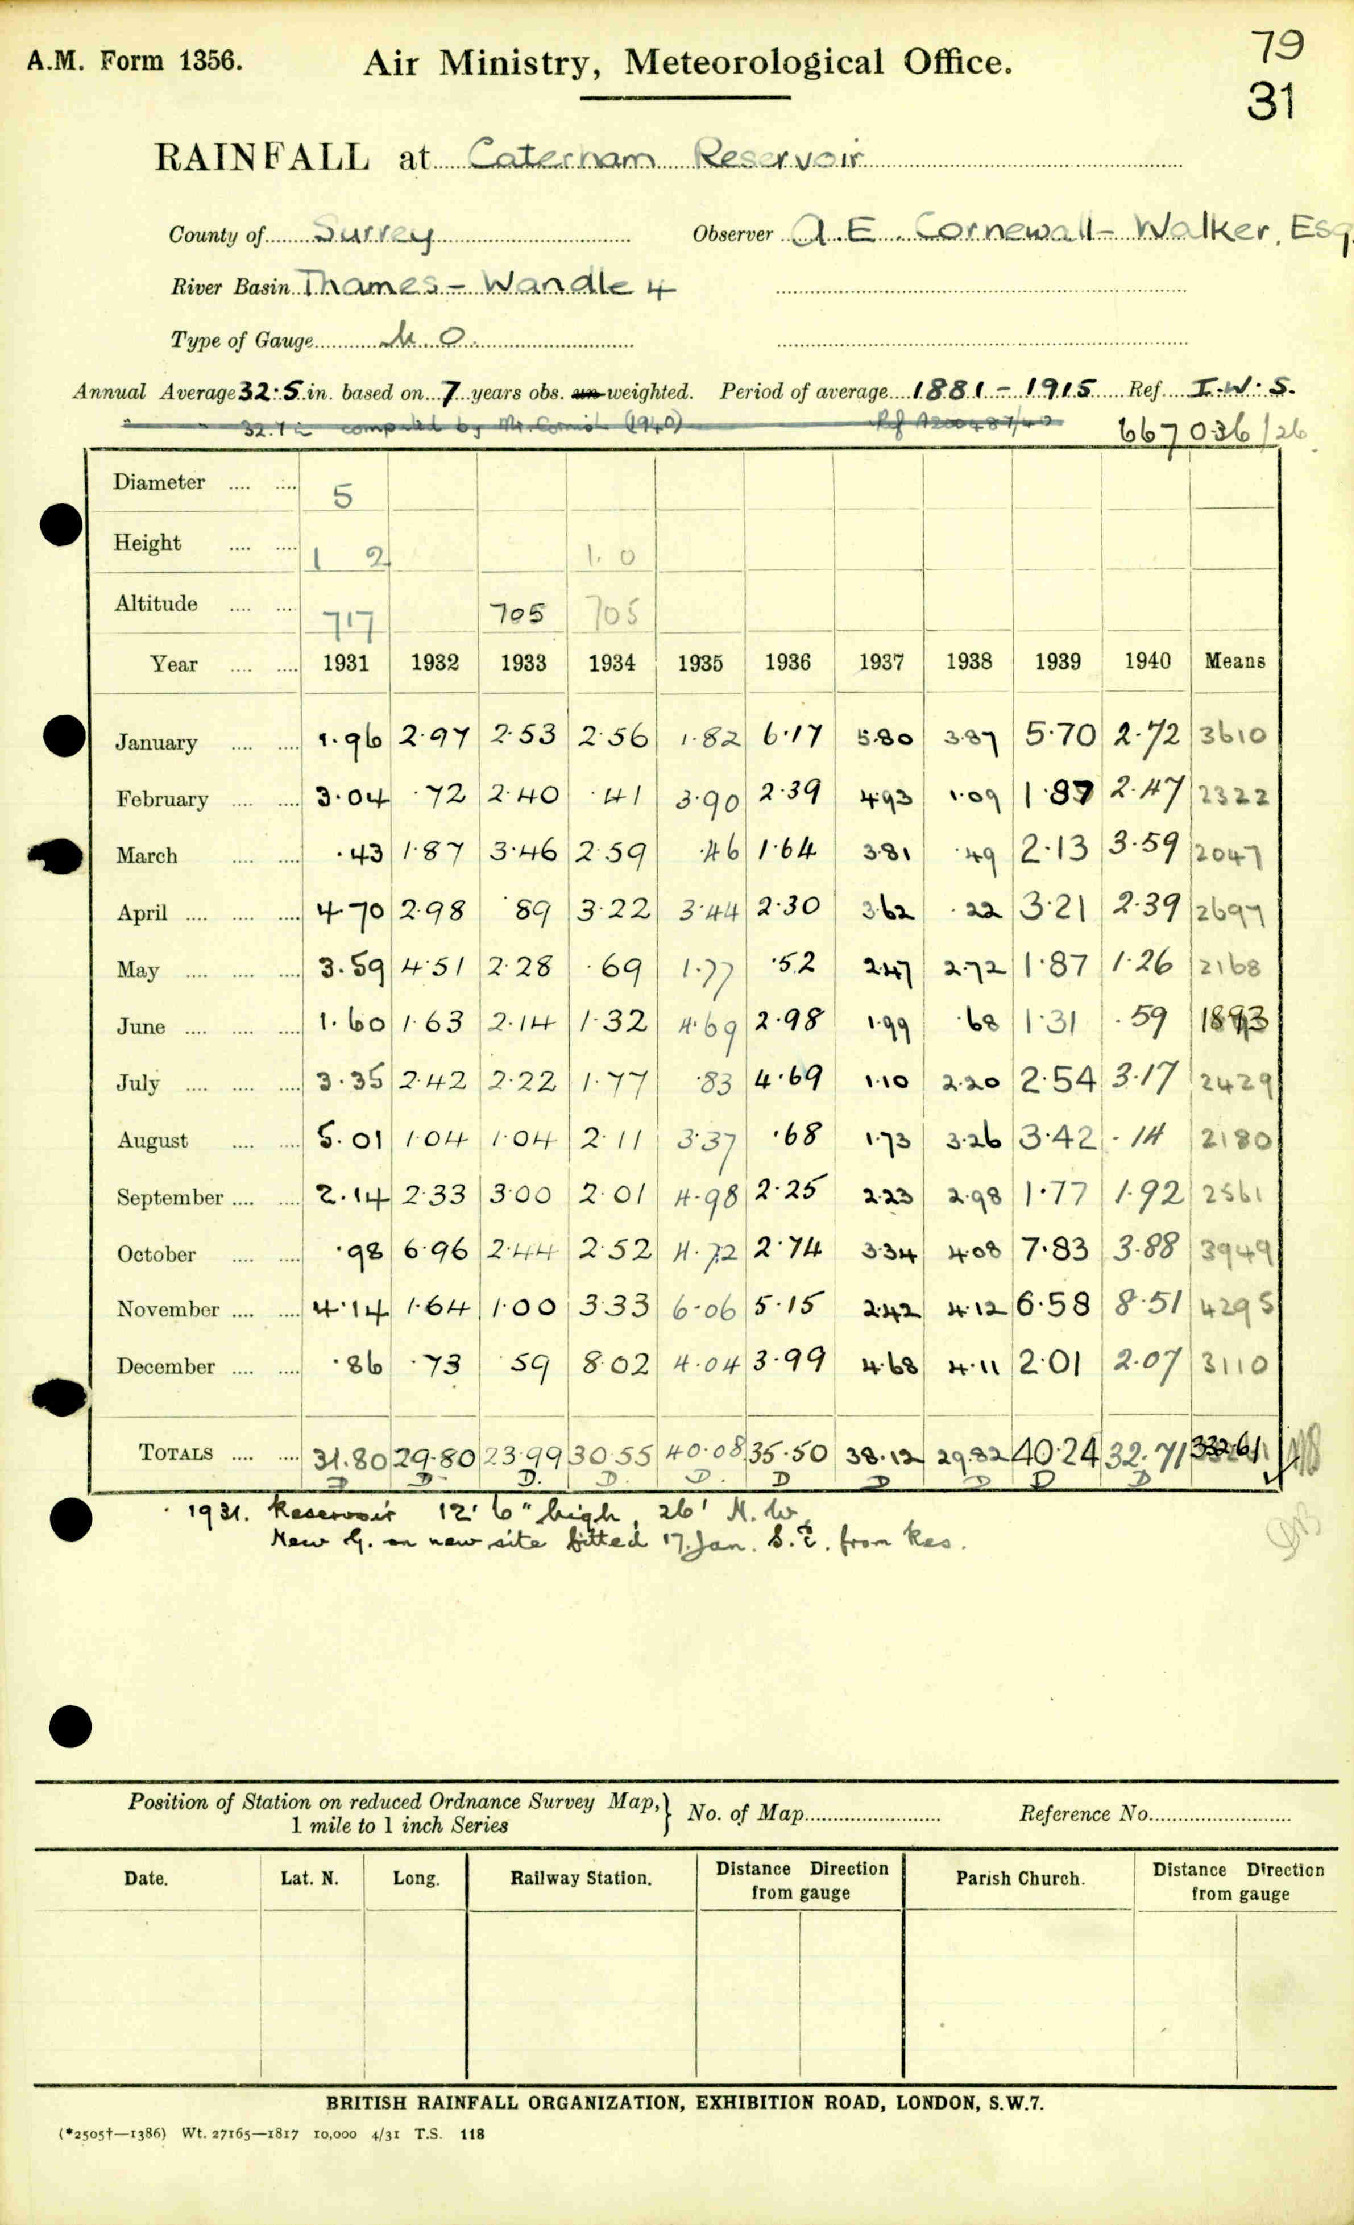 A.M. Form 1356. Air Ministry, Meteorological Office. 79
31
RAINFALL at Caterham Reservoir
County of Surrey Observer A.E. Cornewall-Walker, Esq
River Basin Thames - Wandle 4
Type of Gauge M O
Annual Average 32.5 in. based on 7 years obs. un-weighted. Period of average 1881-1915 Ref. I.W.S.
" " 32.7 in computed by Mr. Cornish (1940) Ref A200487/40 667036/26
Diameter 5
Height 1 2 1.0
Altitude 717 705 705
Year 1931 1932 1933 1934 1935 1936 1937 1938 1939 1940 Means
January 1.96 2.97 2.53 2.56 1.82 6.17 5.80 3.87 5.70 2.72 3610
February 3.04 .72 2.40 .41 3.90 2.39 4.93 1.09 1.87 2.47 2322
March .43 1.87 3.46 2.59 .46 1.64 3.81 .49 2.13 3.59 2047
April 4.70 2.98 .89 3.22 3.44 2.30 3.62 .22 3.21 2.39 2697
May 3.59 4.51 2.28 .69 1.77 .52 2.47 2.72 1.87 1.26 2168
June 1.60 1.63 2.14 1.32 4.69 2.98 1.99 .68 1.31 .59 1893
July 3.35 2.42 2.22 1.77 .83 4.69 1.10 2.20 2.54 3.17 2429
August 5.01 1.04 1.04 2.11 3.37 .68 1.73 3.26 3.42 .14 2180
September 2.14 2.33 3.00 2.01 4.98 2.25 2.23 2.98 1.77 1.92 2561
October .98 6.96 2.44 2.52 4.72 2.74 3.34 4.08 7.83 3.88 3949
November 4.14 1.64 1.00 3.33 6.06 5.15 2.42 4.12 6.58 8.51 4295
December .86 .73 .59 8.02 4.04 3.99 4.68 4.11 2.01 2.07 3110
TOTALS 31.80 29.80 23.99 30.55 40.08 35.50 38.12 29.82 40.24 32.71 33261
D D. D. D. D. D D D D D
1931. Reservoir 12' 6" high, 26' N.W.
New G. on new site fitted 17 Jan. S.E. from Res.
Position of Station on reduced Ordnance Survey Map, 1 mile to 1 inch Series } No. of Map Reference No.
Date. Lat. N. Long. Railway Station. Distance Direction from gauge Parish Church. Distance Direction from gauge
BRITISH RAINFALL ORGANIZATION, EXHIBITION ROAD, LONDON, S.W.7.
(*2505†—1386) Wt. 27165—1817 10,000 4/31 T.S. 118